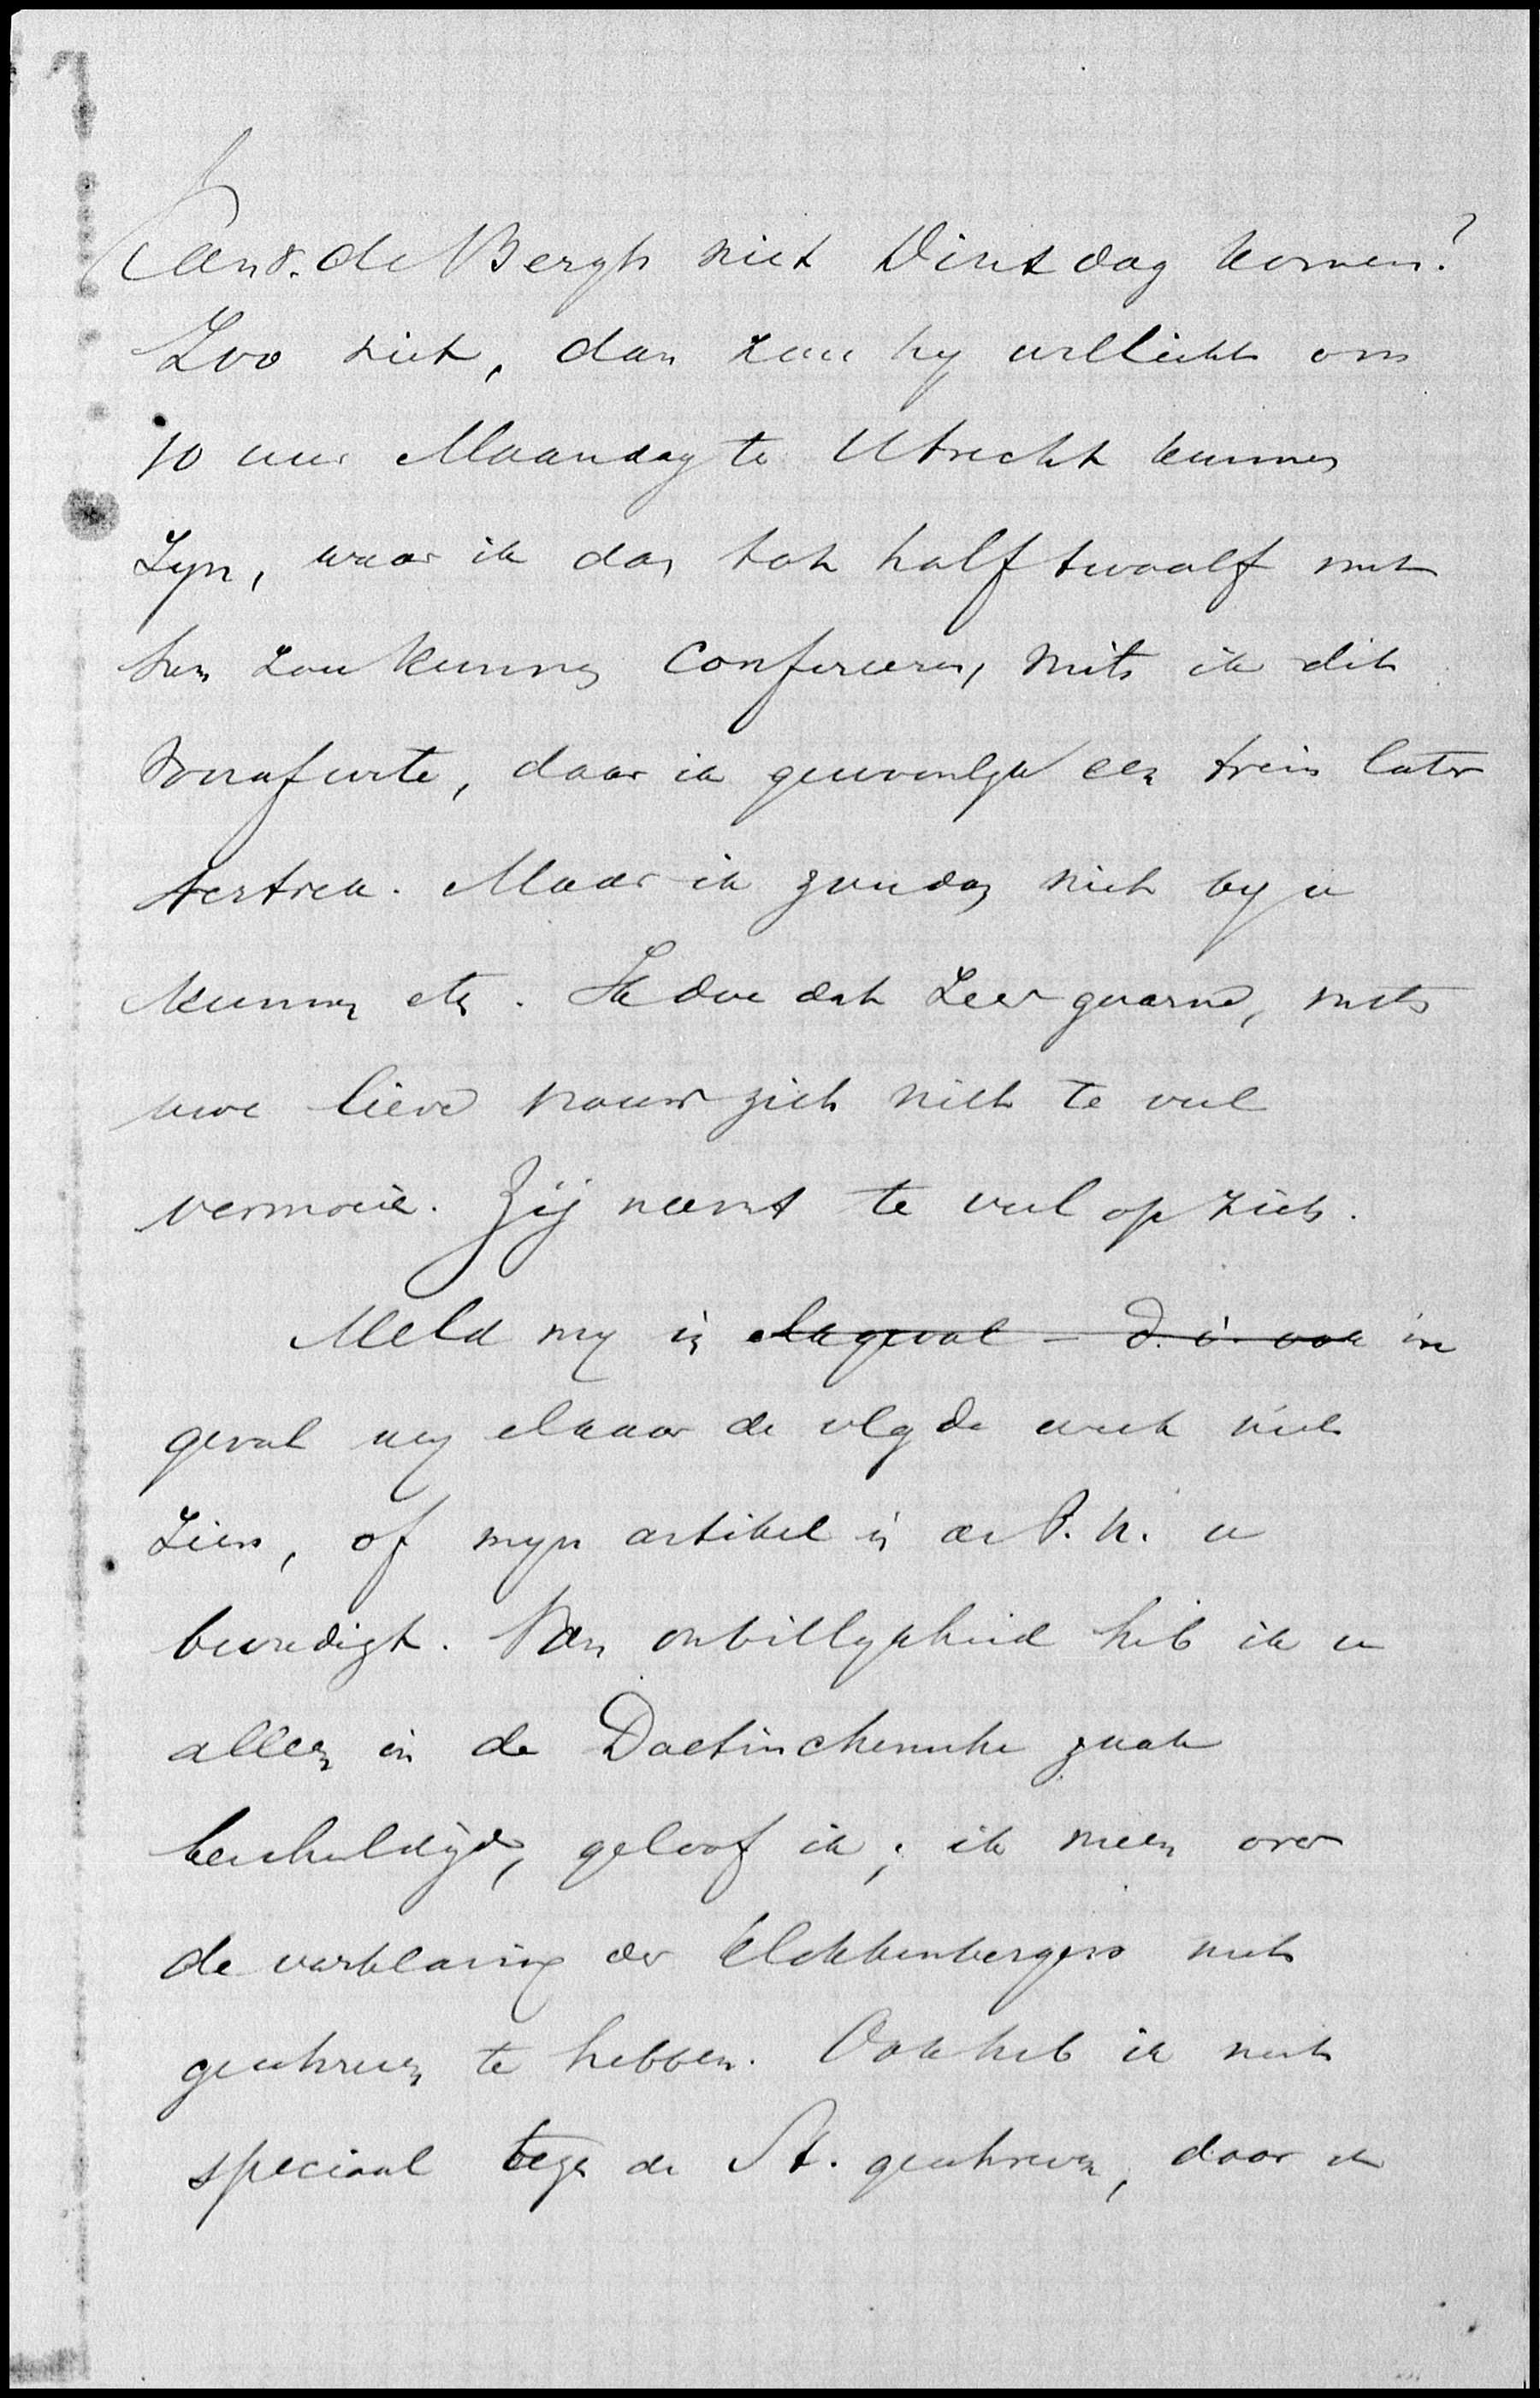 Kan v. de Bergh niet Dinsdag komen?
Zoo niet, dan zou hy wellicht om
10 uur Maandag te Utrecht kunnen
Zyn, waar ik dan tot half twaalf met
hem zou kunnen confereren, mits ik dit
vooraf wete, daar ik gewoonlyk een trein later
vertrek. Maar ik zou dan niet by u
kunnen eten. Ik doe dat zeer gaarne, mits
uwe lieve vrouw zich niet te veel
vermoeie. Zij neemt te veel op zich.
Meld my in elk geval – d.i. ook in
geval wy elkaar de vlgde week niet
Zien, of myn artikel in de P.K. u
bevredigt. Van onbillykheid heb ik u
alleen in de Doetinchemsche zaak
beschuldigd, geloof ik; ik meen over
de verklaring der Klokkenbergers niets
geschreven te hebben. Ook heb ik niets
speciaal tegen de St. geschreven, daar ik